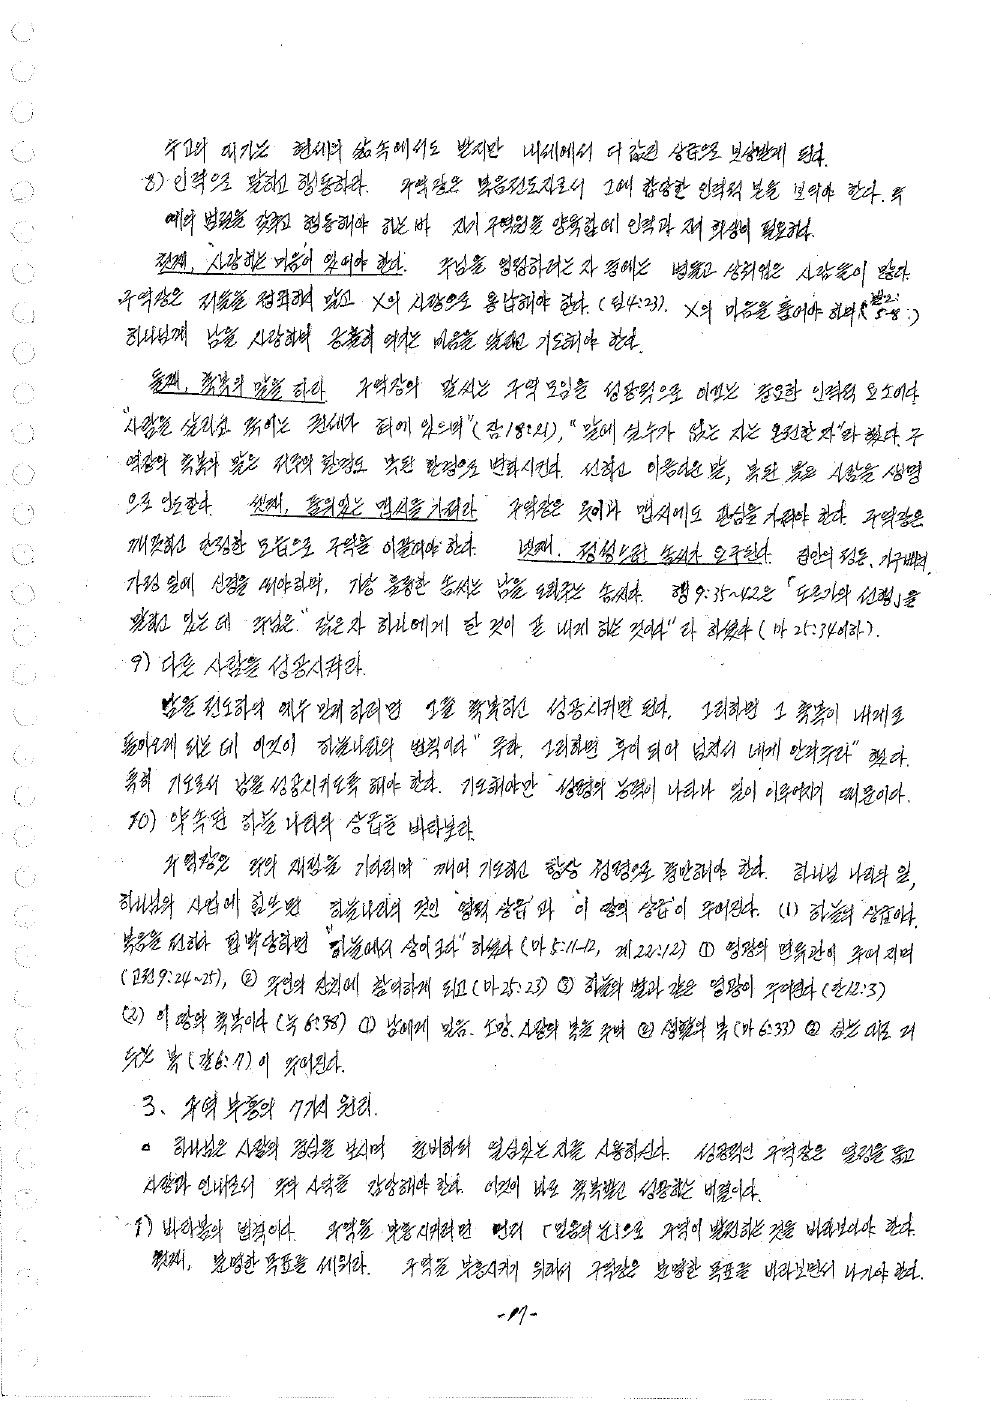 수고의 대가는 현세의 삶속에서도 받지만 내세에서 더 값진 상급으로 보상받게 된다.
8) 인격으로 말하고 행동하라. 구역장은 복음전도자로서 그에 합당한 인격적 본을 보여야 한다. 즉
예의 법절을 갖추고 행동해야 하는 바 자기 구역원을 양육함에 인격과 자기 희생이 필요하다.
첫째, 사랑하는 마음이 있어야 한다. 주님을 영접하려는 자 중에는 병들고 상처입은 사람들이 많다.
구역장은 저들을 정죄하지 말고 X의 사랑으로 용납해야 한다. (딛4:23). X의 마음을 품어야 하며 (빌2:5-8)
하나님께 남을 사랑하며 긍휼히 여기는 마음을 달라고 기도해야 한다.
둘째, 축복의 말을 하라 구역장의 말씨는 구역모임을 성공적으로 이끄는 중요한 인격적 요소이다
"사람을 살리고 죽이는 권세가 혀에 있으며"(잠18:21), "말에 실수가 없는 자는 온전한 자"라 했다. 구
역장의 축복의 말은 저주의 환경도 복된 환경으로 변화시킨다. 선하고 아름다운 말, 복된 말은 사람을 생명
으로 인도한다. 셋째, 품위있는 맵시를 가져라 구역장은 용어와 맵시에도 관심을 가져야 한다. 구역장은
깨끗하고 단정한 모습으로 구역을 이끌어야 한다. 넷째. 정성스런 솜씨가 요구된다. 집안의 정돈, 가구배치,
가정 일에 신경을 써야하며, 가장 훌륭한 솜씨는 남을 도와주는 솜씨다. 행9:35~42은 「도르가의 선행」을
말하고 있는 데 주님은 "작은 자 하나에게 한 것이 곧 내게 하는 것이다"라 하셨다 (마 25:34이하).
9) 다른 사람을 성공시켜라.
남을 전도하여 예수 믿게 하려면 그를 축복하고 성공시키면 된다. 그리하면 그 축복이 내게로
돌아오게 되는 데 이것이 하늘나라의 법칙이다 "주라, 그리하면 후이 되어 넘쳐서 내게 안겨주라" 했다.
특히 기도로서 남을 성공시키도록 해야 한다. 기도해야만 성령의 능력이 나타나 일이 이루어지기 때문이다.
10) 약속된 하늘 나라의 상급을 바라보라.
구역장은 주의 재림을 기다리며 깨어 기도하고 항상 성령으로 충만해야 한다. 하나님 나라의 일,
하나님의 사업에 힘쓰면 하늘나라의 것인 '영적 상급'과 '이 땅의 상급'이 주어진다. (1) 하늘의 상급이다.
복음을 전하다 핍박당하면 "하늘에서 상이 크다" 하셨다 (마5:11-12, 계22:12) ① 영광의 면류관이 주어지며
(고전9:24~25), ② 주인의 잔치에 참여하게 되고 (마25:23) ③ 하늘의 별과 같은 영광이 주어진다 (단12:3)
(2) 이 땅의 축복이다 (눅 6:38) ① 남에게 믿음. 소망. 사랑의 복을 주며 ② 생활의 복 (마 6:33) ③ 심는 대로 거
두는 복 (갈6:7) 이 주어진다.
3、구역 부흥의 7가지 원리.
▫ 하나님은 사람의 중심을 보시며 준비하되 열심있는 자를 사용하신다. 성공적인 구역장은 열정을 품고
사랑과 인내로서 주의 사역을 감당해야 한다. 이것이 바로 축복받고 성공하는 비결이다.
1) 바라봄의 법칙이다. 구역을 부흥시키려면 먼저 「믿음의 눈」으로 구역이 발전하는 것을 바라보아야 한다.
첫째, 분명한 목표를 세워라. 구역을 부흥시키기 위해서 구역장은 분명한 목표를 바라보면서 나가야 한다.
-97-